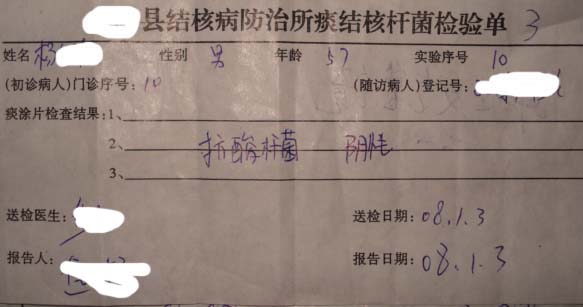 县结核病防治所痰结核杆菌检验单 3
姓名 杨 性别 男 年龄 57 实验序号 10
(初诊病人)门诊序号：10 (随访病人)登记号：
痰涂片检查结果：1、
2、 抗酸杆菌 阴性
3、
送检医生： 送检日期：08.1.3
报告人： 报告日期：08.1.3